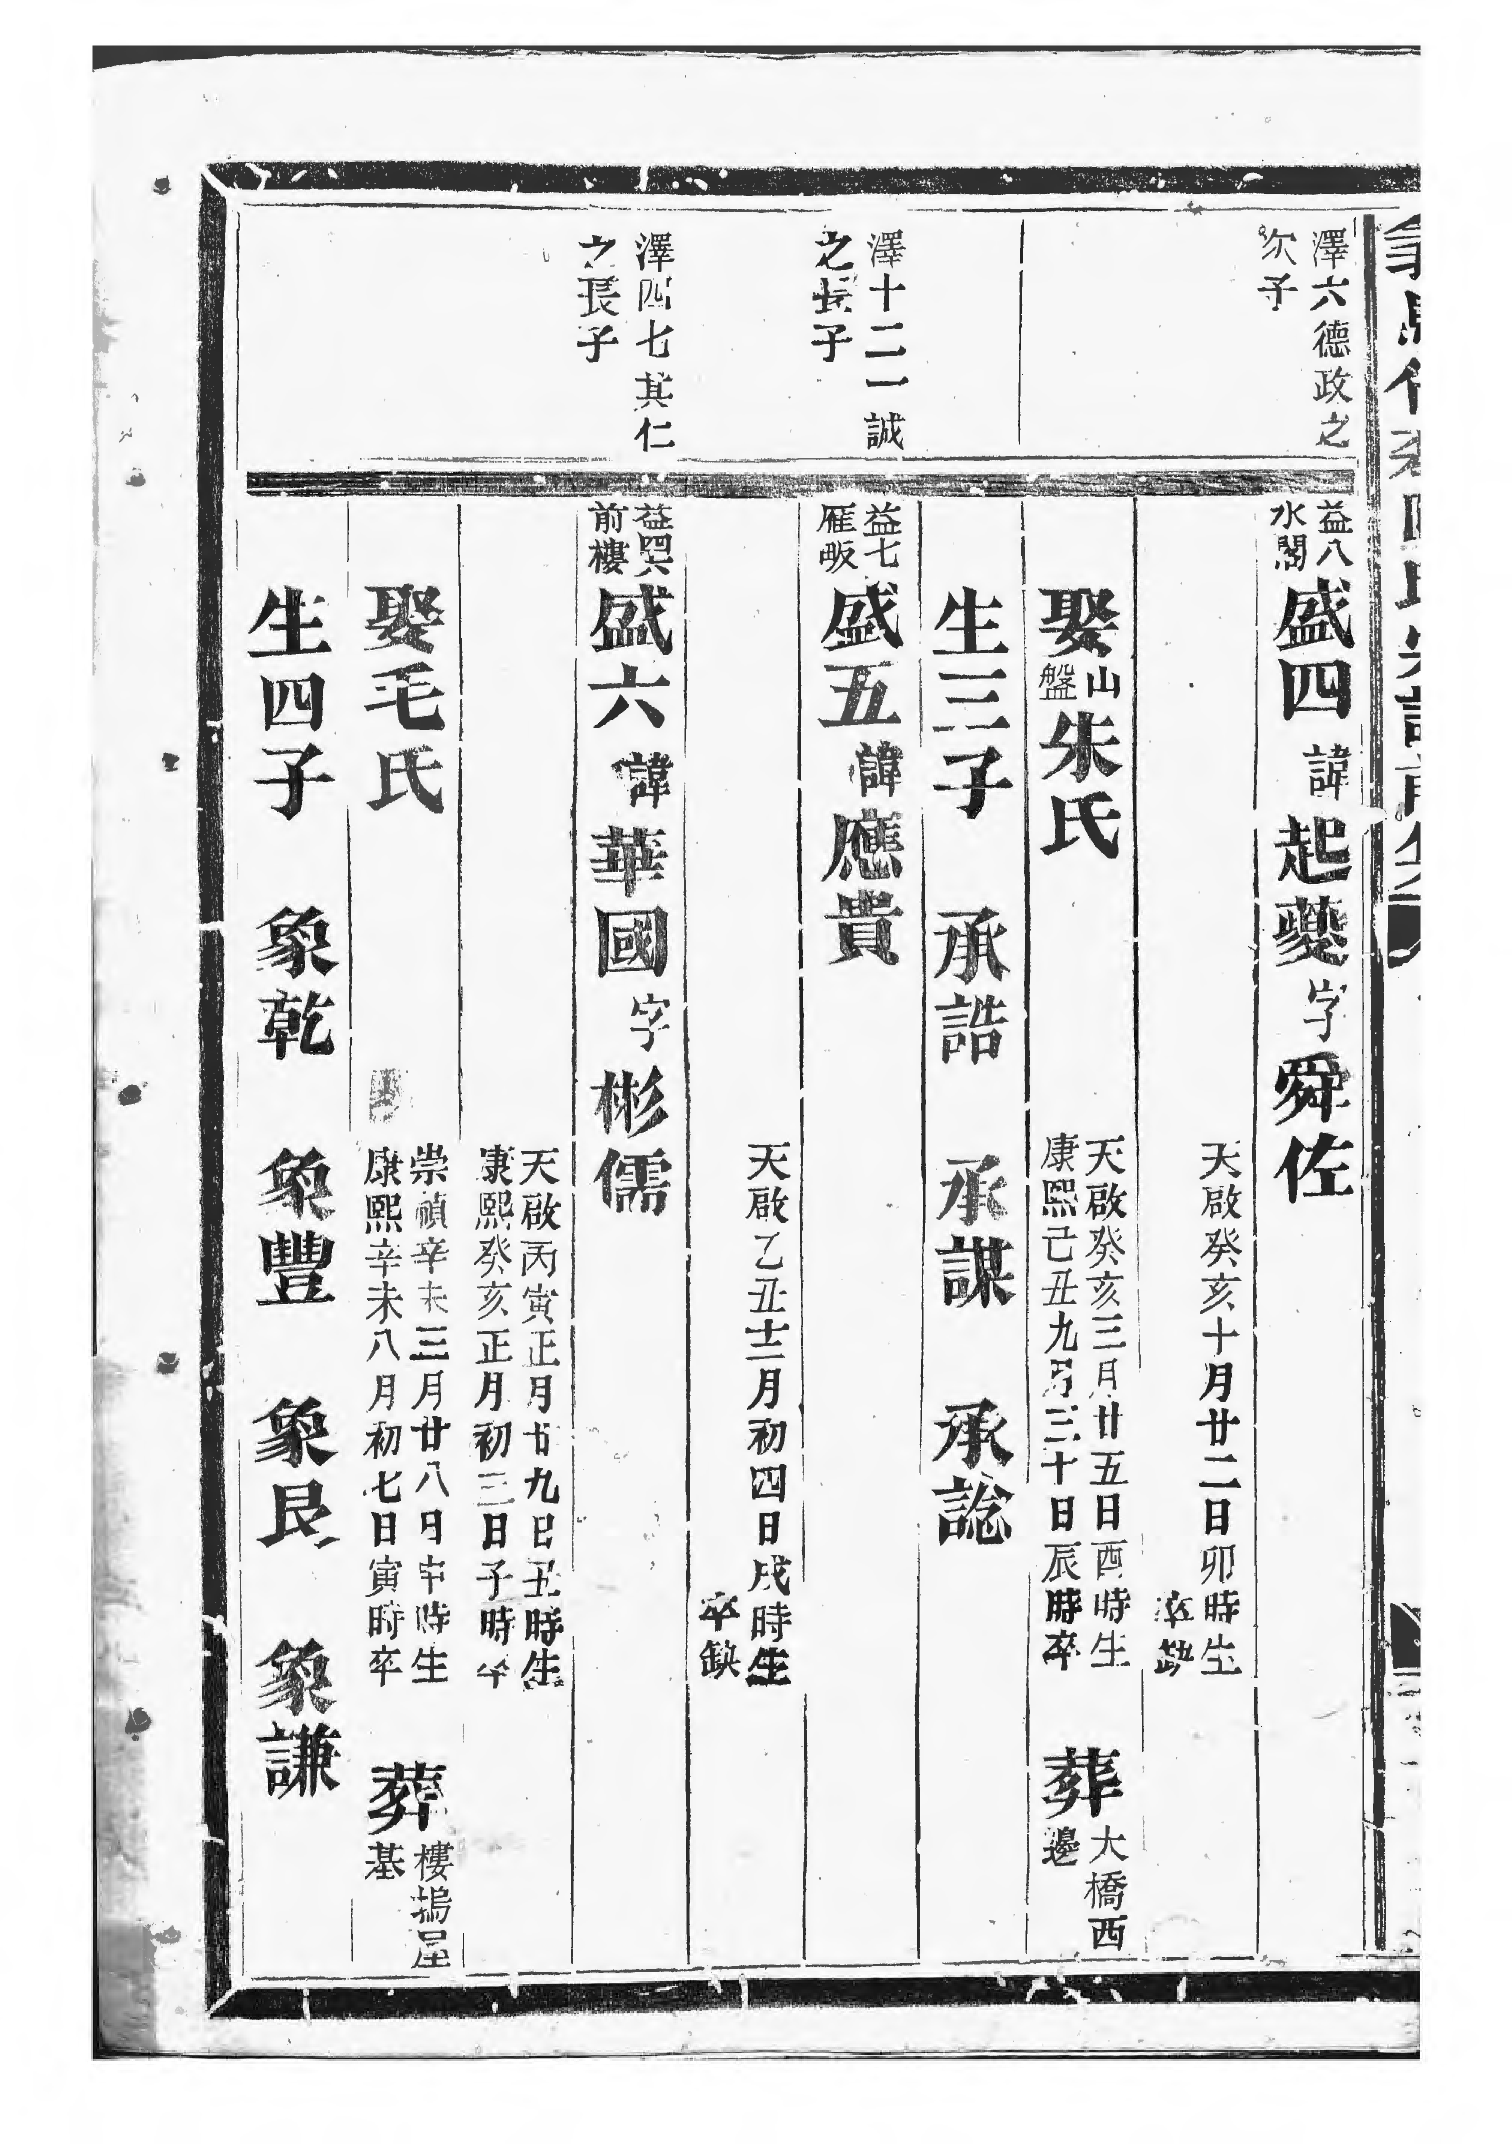 澤六德政之
次子
益八
水閣
盛四諱起夔字舜佐
天啟癸亥十月廿二日卯時生
卒缺
娶山盤朱氏
天啟癸亥三月廿五日酉時生
康熙己丑九月三十日辰時卒
葬大橋西
邊
生三子 承誥 承謀 承諗
澤十二一誠
之長子
益七
雁畈
盛五諱應貴
天啟乙丑十二月初四日戌時生
卒缺
澤四七其仁
之長子
益四六
前樓
盛六諱華國字彬儒
天啟丙寅正月廿九日丑時生
康熙癸亥正月初三日子時卒
娶毛氏
崇禎辛未三月廿八日申時生
康熙辛未八月初七日寅時卒
葬樓塢屋
基
生四子 象乾 象豐 象艮 象謙